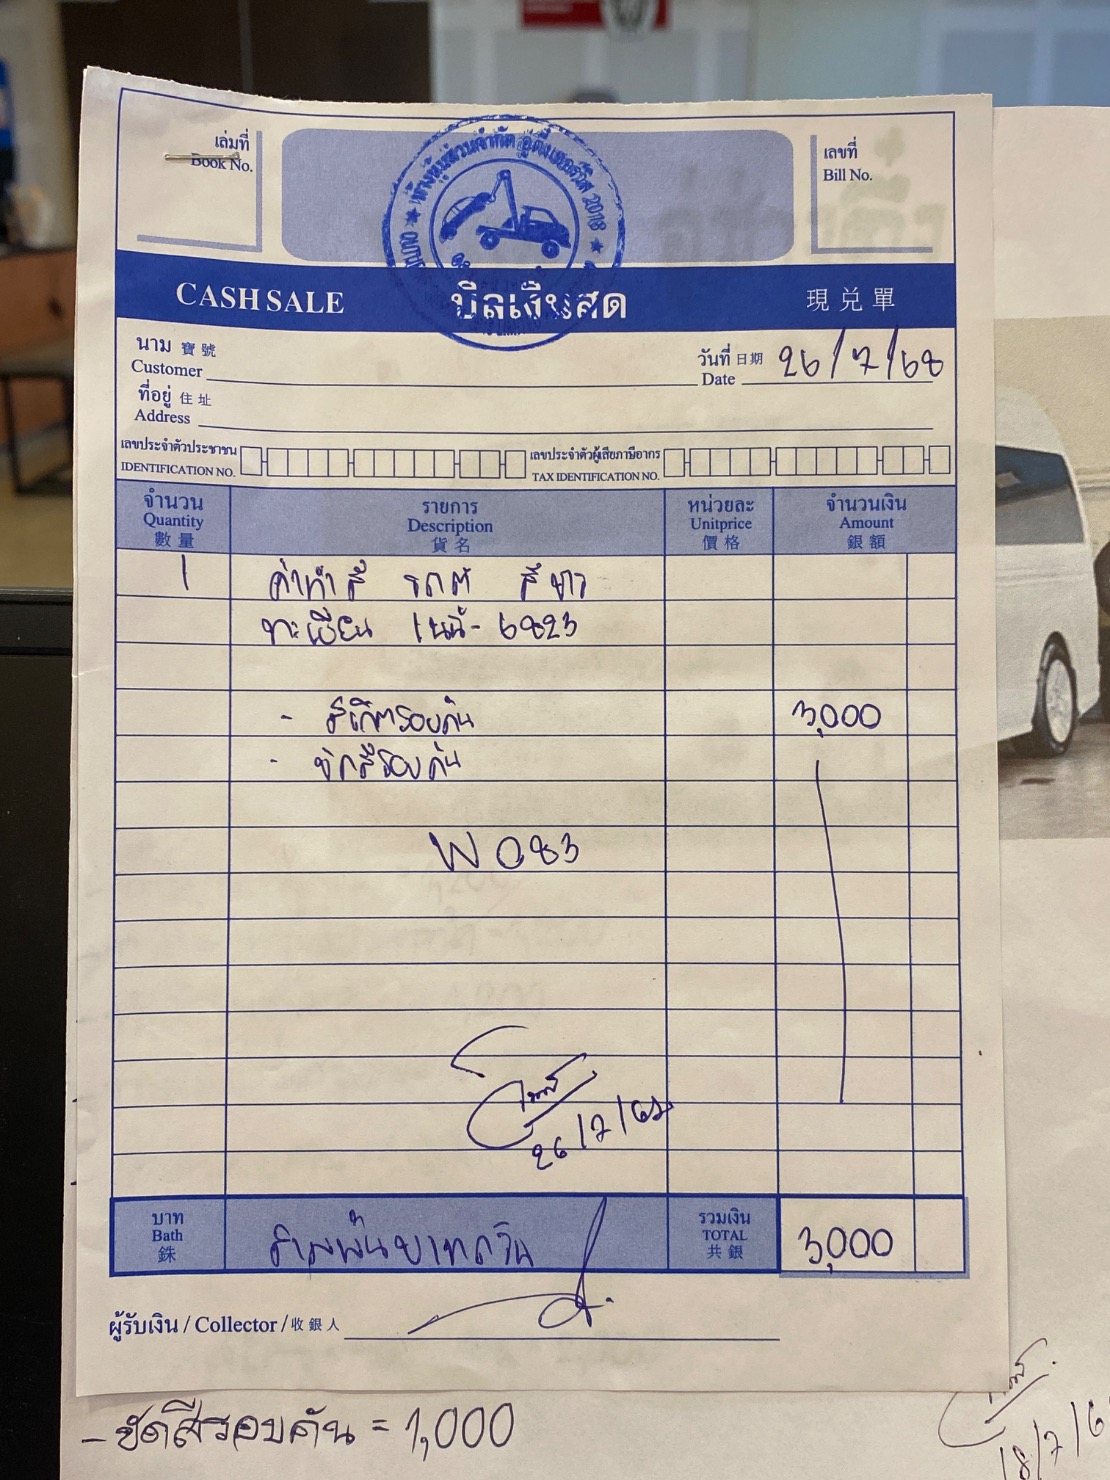 เล่มที่
Book No.
ห้างหุ้นส่วนจำกัด
2018
เลขที่
Bill No.
CASH SALE
บิลเงินสด
現兑單
นาม 寶號
Customer
วันที่ 日期
Date
26/7/68
ที่อยู่ 住址
Address
เลขประจำตัวประชาชน
IDENTIFICATION NO.
เลขประจำตัวผู้เสียภาษีอากร
TAX IDENTIFICATION NO.
จำนวน
Quantity
數量
รายการ
Description
貨名
หน่วยละ
Unitprice
價格
จำนวนเงิน
Amount
銀額
1 ค่าทำสี รถตู้ สีขาว
ทะเบียน 1นข-6823
- สีเก็บรอบคัน 3,000
- ขัดสีรอบคัน
W083
26/7/68
บาท
Bath
銖
สามพันบาทถ้วน
รวมเงิน
TOTAL
共銀
3,000
ผู้รับเงิน / Collector / 收銀人
- ขัดสีรอบคัน = 1,000
18/7/6